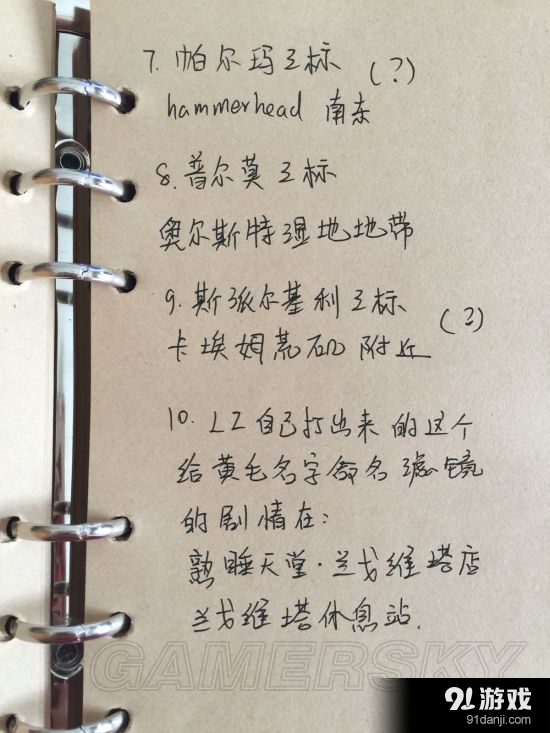 7. 帕尔玛立标 (?)
hammerhead 南东
8. 普尔莫立标
奥尔斯特湿地地带
9. 斯派尔基利立标 (?)
卡埃姆荒矶附近
10. LZ自己打出来的这个
给黄毛名字命名滤镜
的剧情在:
熟睡天堂·兰戈维塔店
兰戈维塔休息站.
GAMERSKY
91游戏
91danji.com